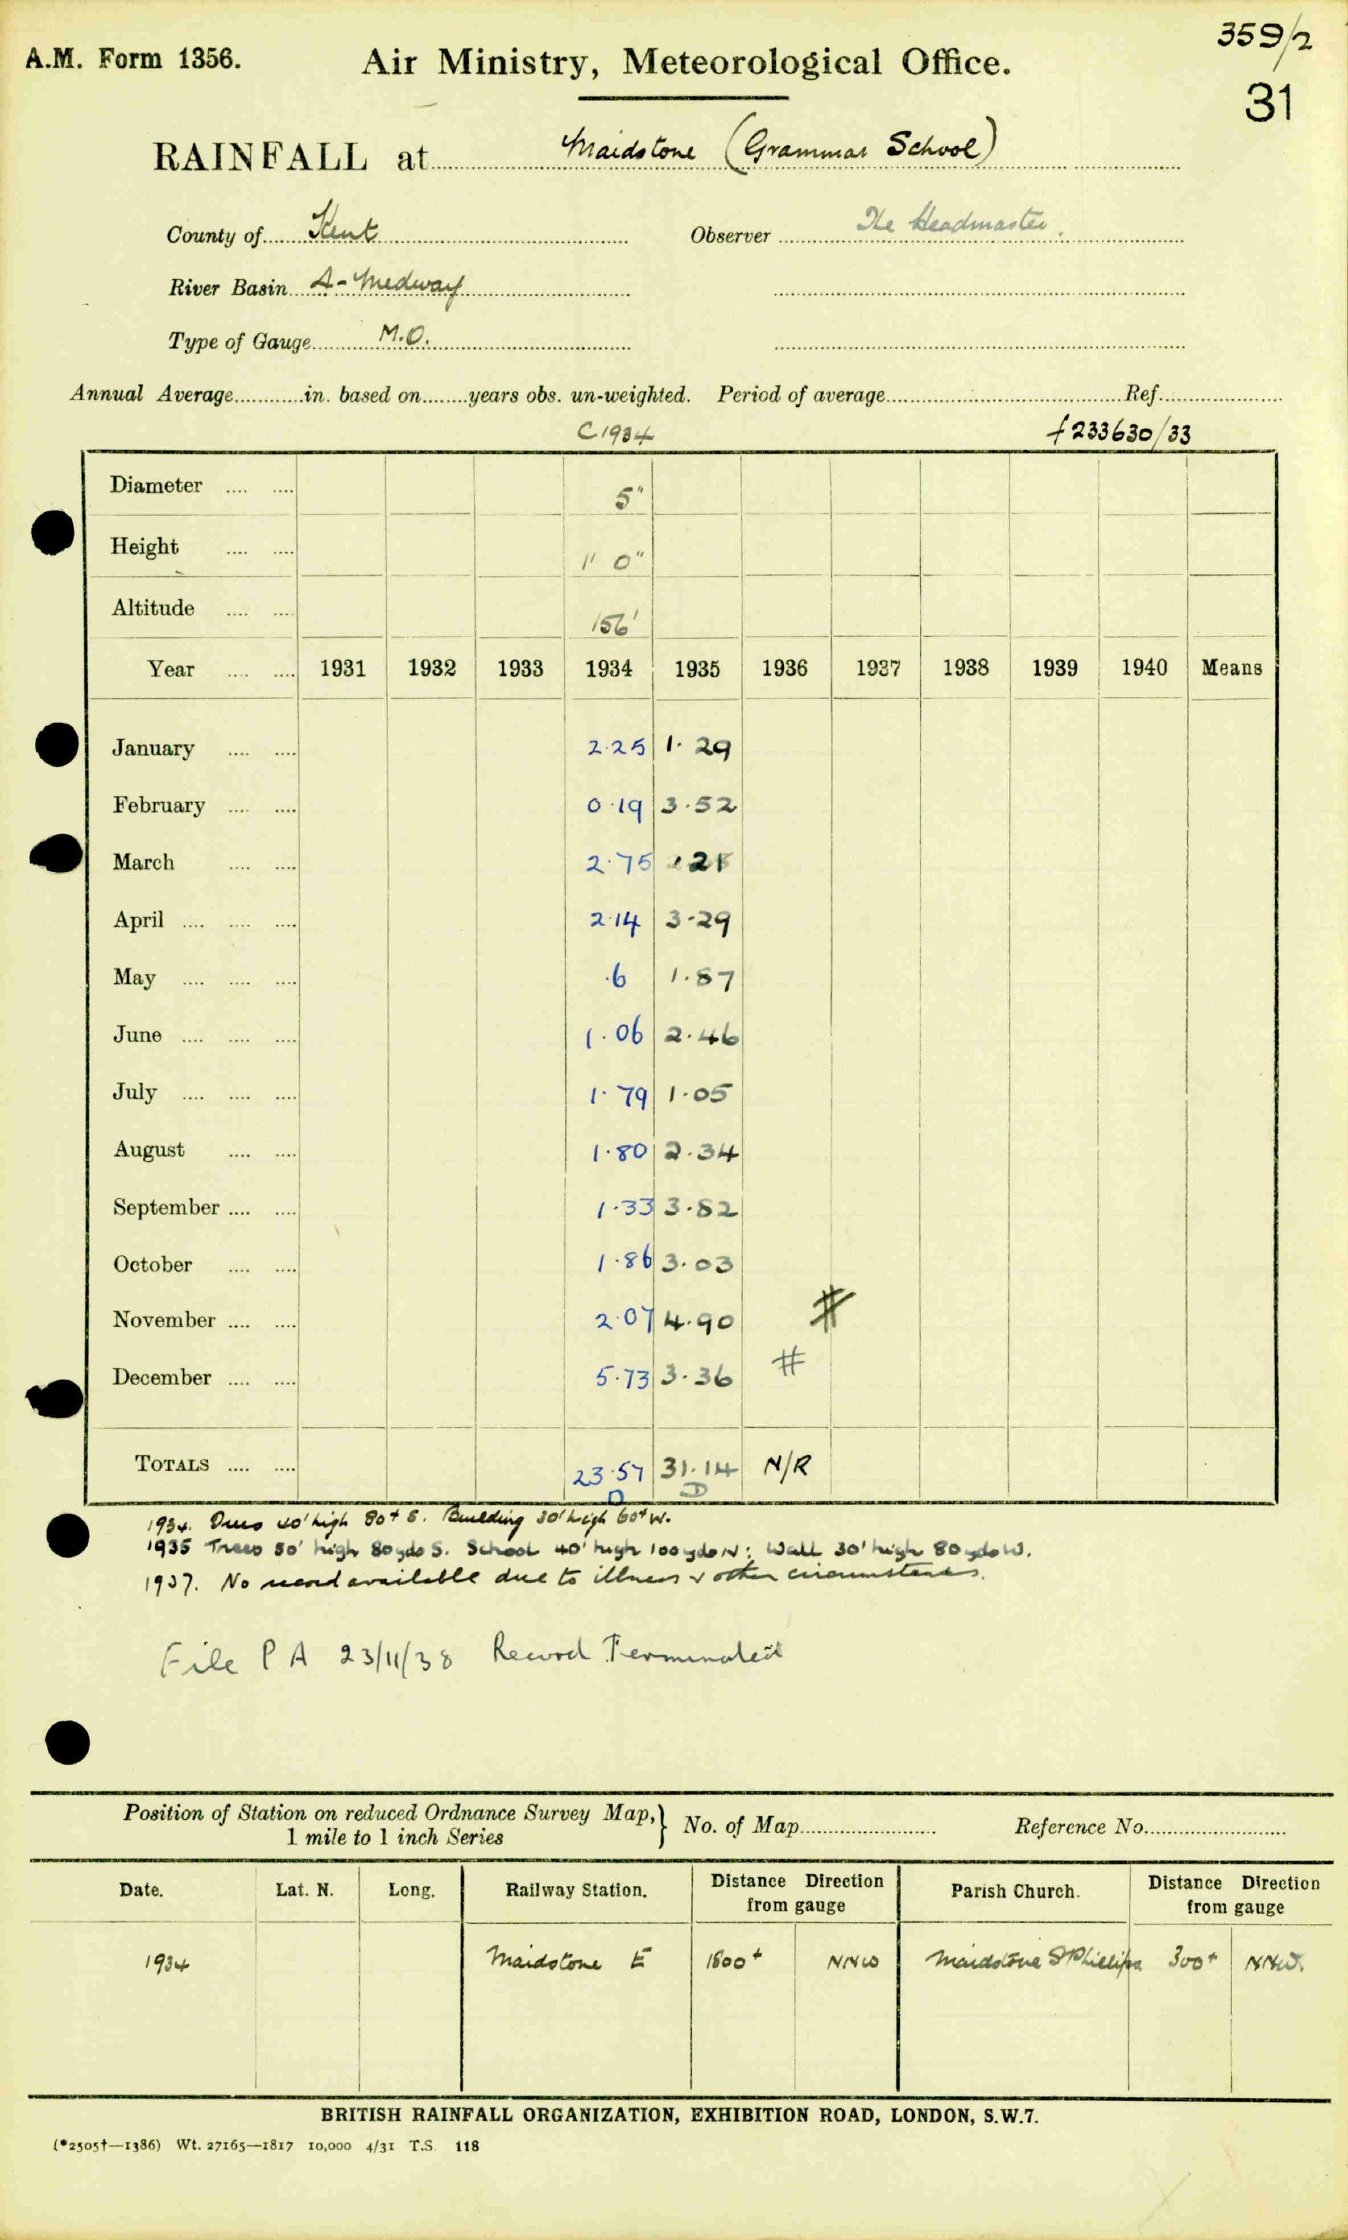 359/2
A.M. Form 1356.
Air Ministry, Meteorological Office.
31
RAINFALL at Maidstone (Grammar School)
County of Kent Observer The Headmaster.
River Basin A-Medway
Type of Gauge M.O.
Annual Average in. based on years obs. un-weighted. Period of average Ref.
C 1934 f233630/33
Diameter 5"
Height 1' 0"
Altitude 156'
Year 1931 1932 1933 1934 1935 1936 1937 1938 1939 1940 Means
January 2.25 1.29
February 0.19 3.52
March 2.75 .21
April 2.14 3.29
May .6 1.87
June 1.06 2.46
July 1.79 1.05
August 1.80 2.34
September 1.33 3.82
October 1.86 3.03
November 2.07 4.90 #
December 5.73 3.36 #
TOTALS 23.57 31.14 N/R
D D
1934. Trees 40' high 80+ S. Building 30' high 60+ W.
1935 Trees 50' high 80yds S. School 40' high 100yds N: Wall 30' high 80yds W.
1937. No record available due to illness & other circumstances.
File P A 23/11/38 Record Terminated
Position of Station on reduced Ordnance Survey Map, } No. of Map Reference No.
1 mile to 1 inch Series
Date. Lat. N. Long. Railway Station. Distance Direction from gauge Parish Church. Distance Direction from gauge
1934 Maidstone E 1800+ NNW Maidstone St Phillips 300+ NNW.
BRITISH RAINFALL ORGANIZATION, EXHIBITION ROAD, LONDON, S.W.7.
(*2505†—1386) Wt. 27165—1817 10,000 4/31 T.S. 118